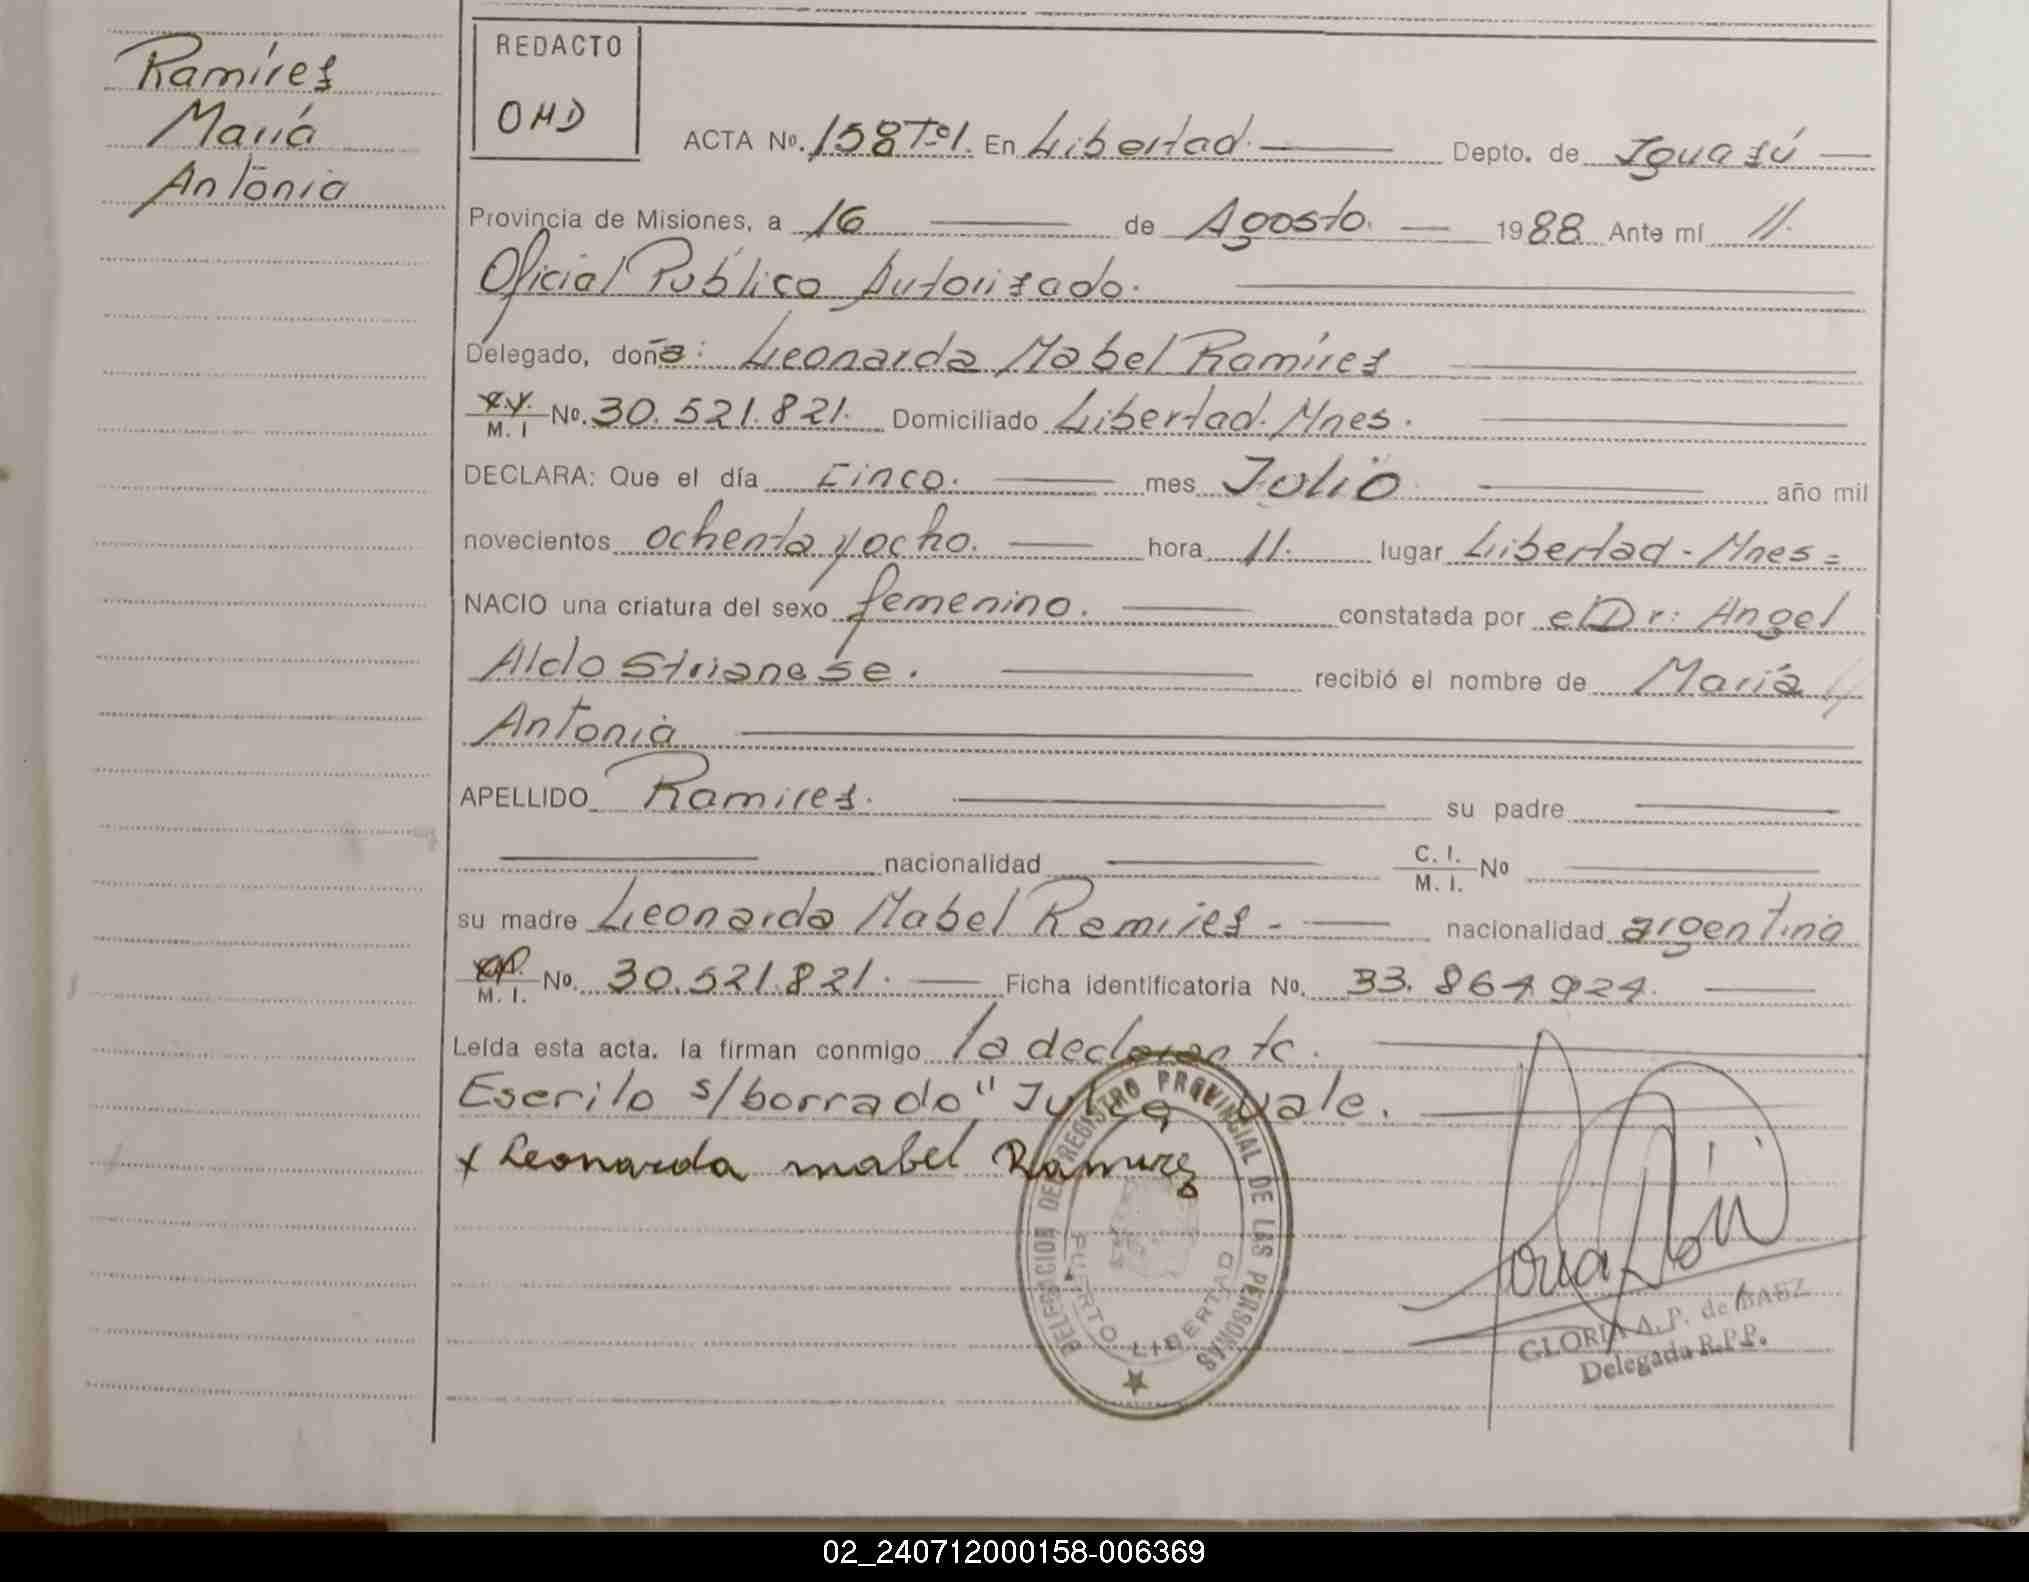 Ramíres
María
Antonia
REDACTO
OHD
ACTA Nº. 158 Tº1. En Libertad. Depto. de Iguasú
Provincia de Misiones, a 16 de Agosto. 1988. Ante mí //.
Oficial Público Autorisado.
Delegado, doña: Leonarda Mabel Ramíres
M. I No. 30.521.821. Domiciliado Libertad. Mnes.
DECLARA: Que el día Cinco. mes Julio año mil
novecientos ochenta y ocho. hora 11. lugar Libertad - Mnes =
NACIO una criatura del sexo femenino. constatada por el Dr: Angel
Aldo Strianese. recibió el nombre de María
Antonia
APELLIDO Ramires. su padre
nacionalidad C. I. M. I. No
su madre Leonarda Mabel Ramires - nacionalidad argentina
M. I. No. 30.521.821. Ficha identificatoria No. 33.864924.
Leída esta acta, la firman conmigo la declarante.
Escrito s/borrado "Julio vale.
x Leonarda mabel Ramires
DELEGACION DEL REGISTRO PROVINCIAL DE LAS PERSONAS
PUERTO LIBERTAD
GLORIA A. P. de BAEZ
Delegada R.P.P.
02_240712000158-006369